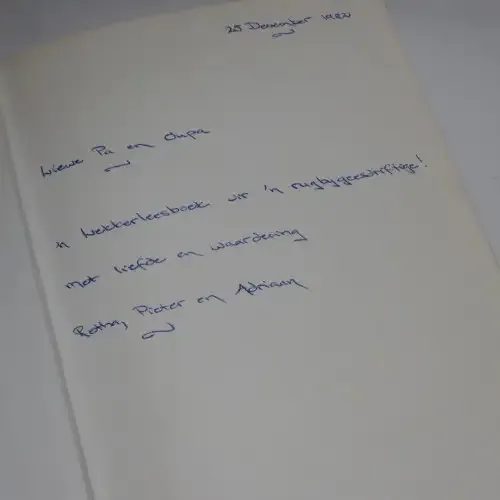 25 Desember
Liewe Pa en Oupa
'n Lekkerleesboek vir 'n rugbygeesdriftige!
met liefde en waardering
Pieter en Adriaan